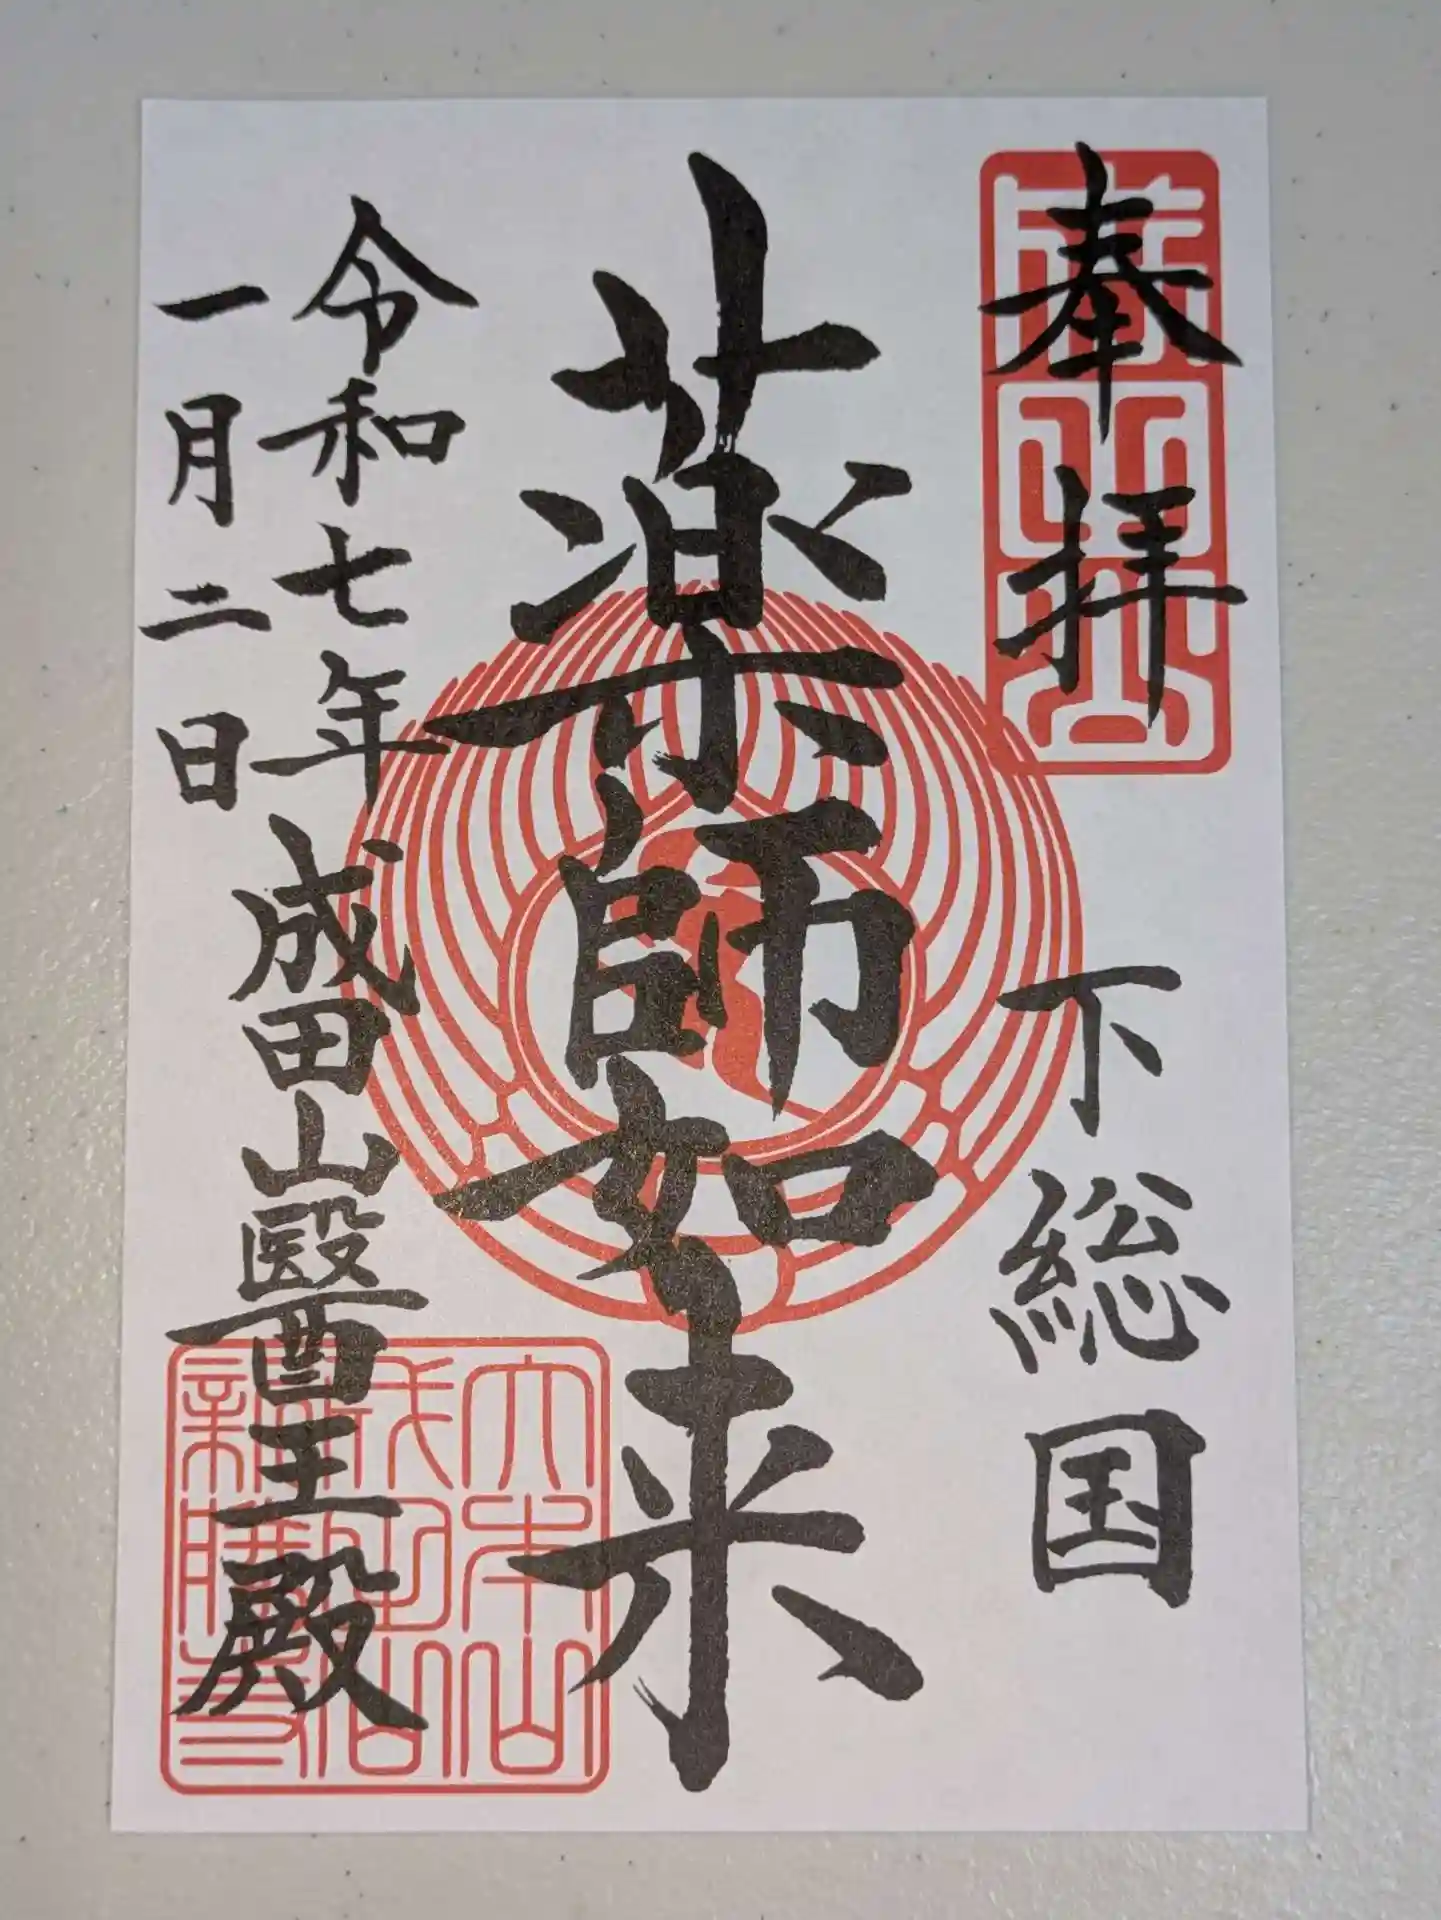 奉拝
下総国
薬師如来
令和七年
一月二日
成田山醫王殿
大本山
成田山
新勝寺